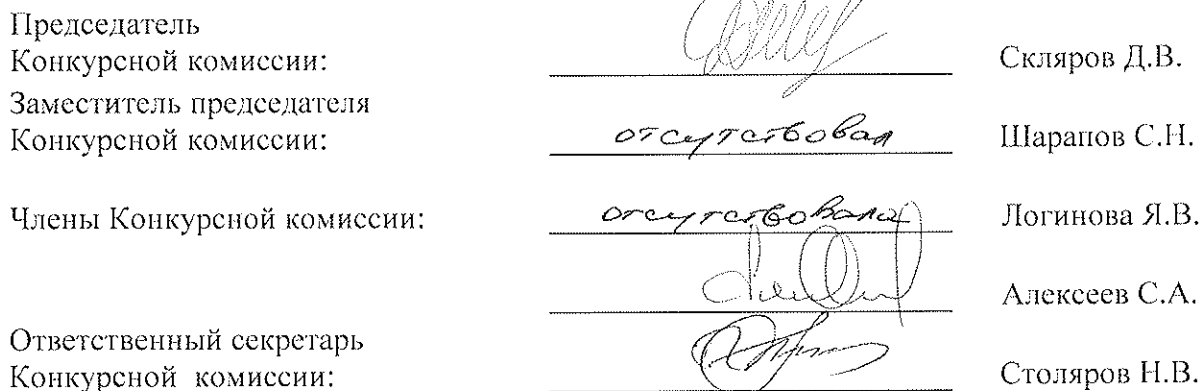 Председатель
Конкурсной комиссии: Скляров Д.В.
Заместитель председателя
Конкурсной комиссии: отсутствовал Шарапов С.Н.
Члены Конкурсной комиссии: отсутствовала Логинова Я.В.
Алексеев С.А.
Ответственный секретарь
Конкурсной комиссии: Столяров Н.В.